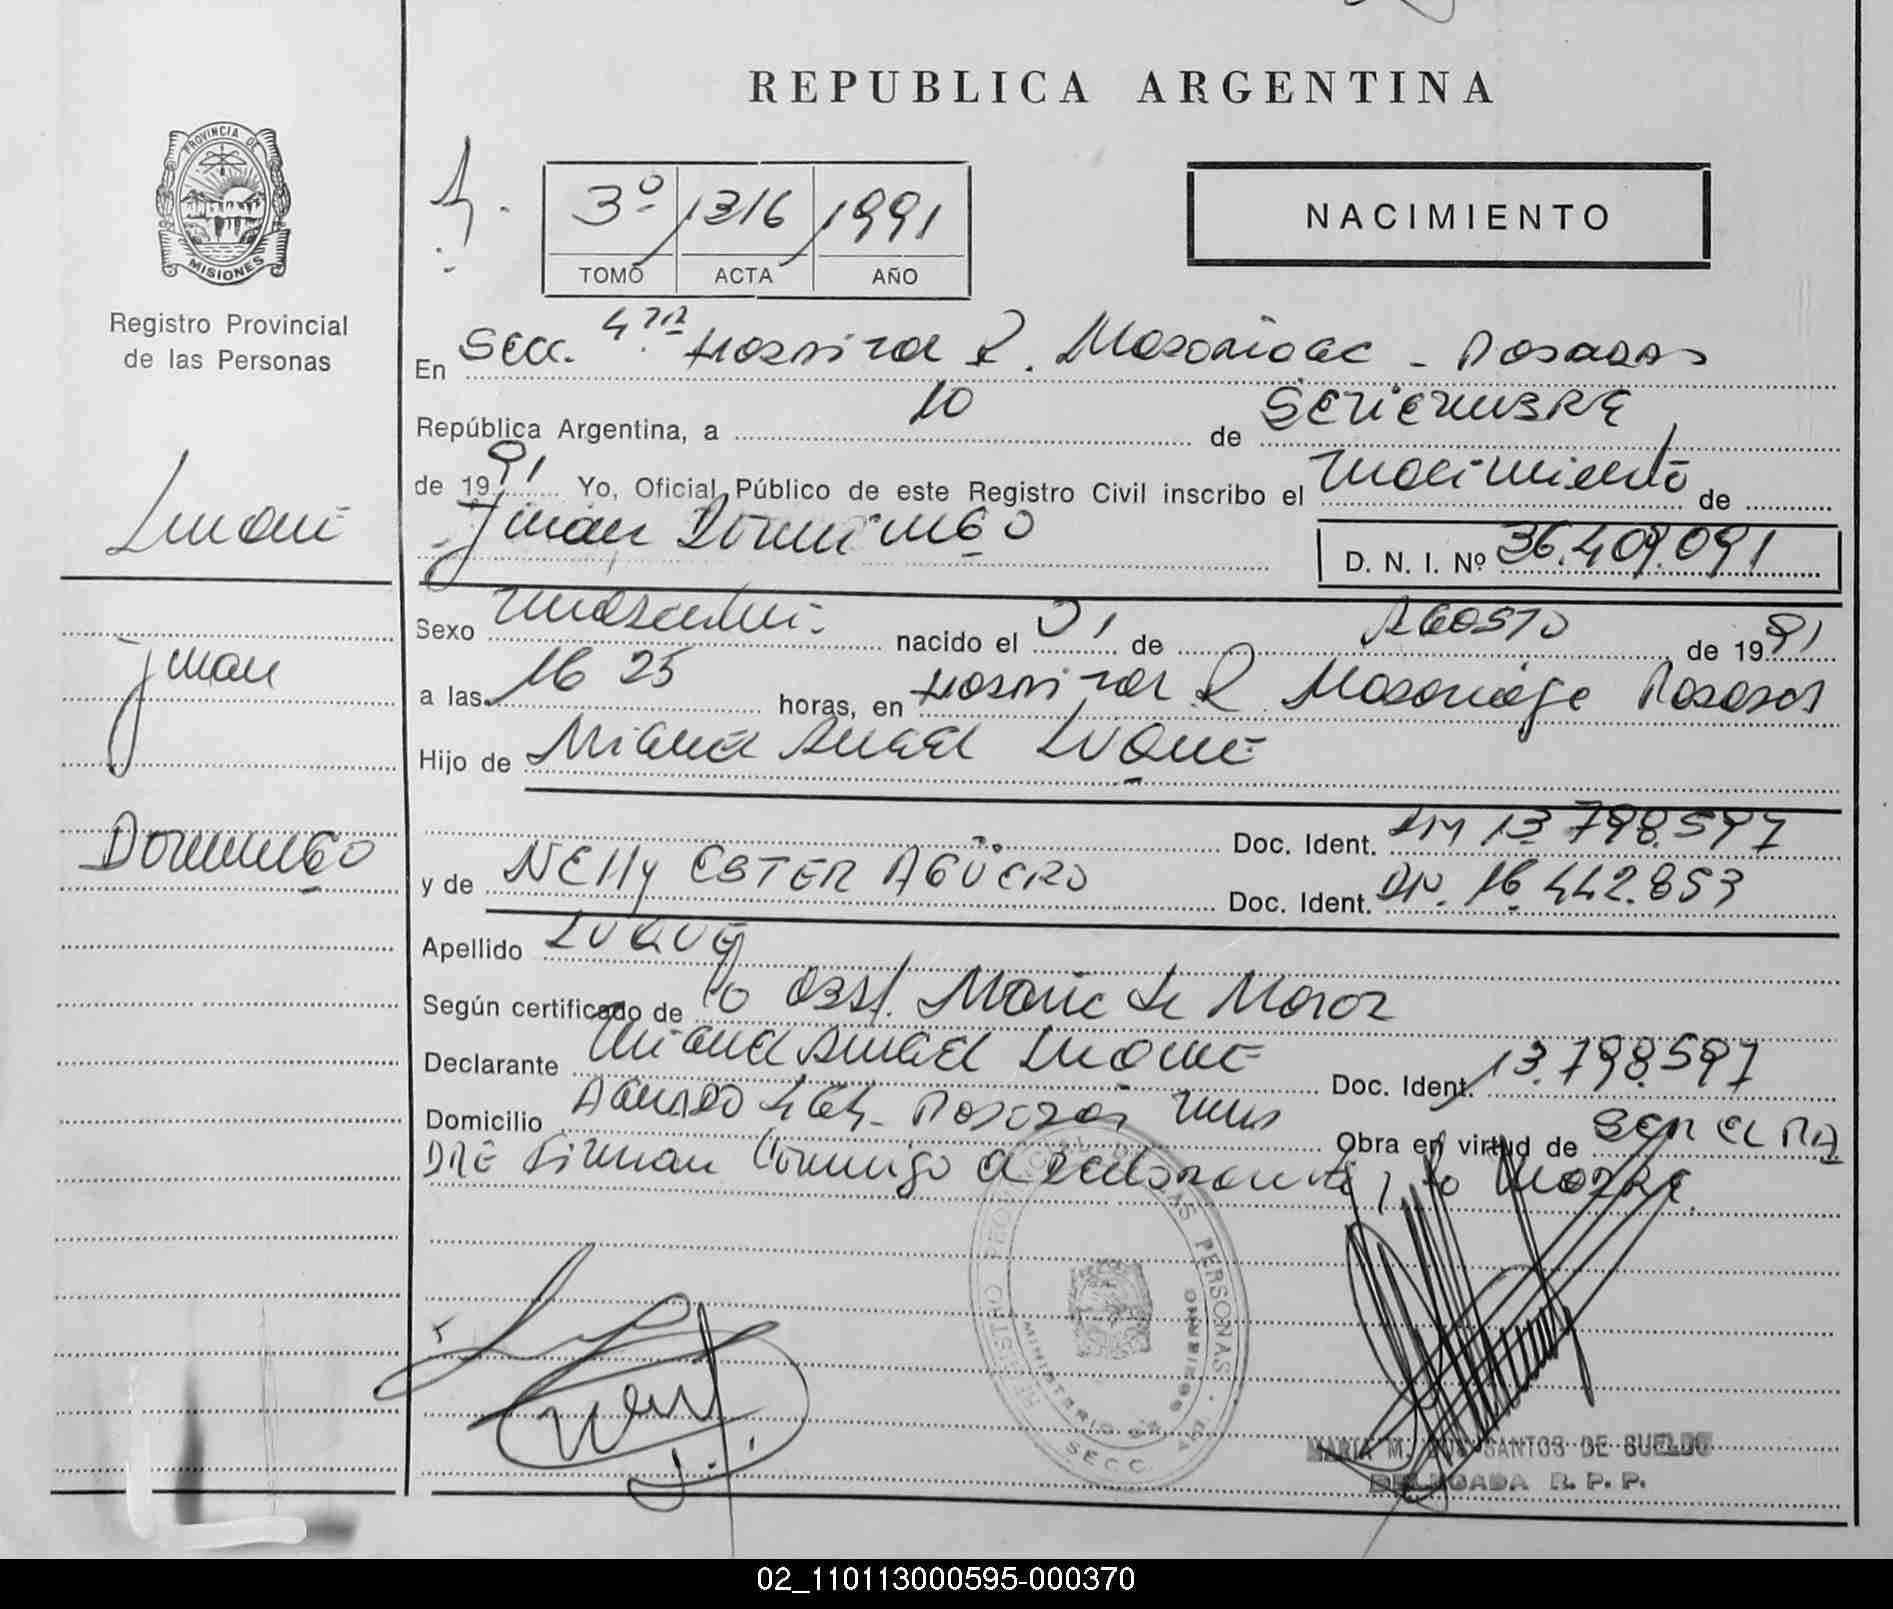 REPUBLICA ARGENTINA
PROVINCIA DE
MISIONES
Registro Provincial
de las Personas
3º 1316 1991
TOMO ACTA AÑO
NACIMIENTO
En Secc. 4ta Hospital R. Madariaga - Posadas
República Argentina, a 10 de SETIEMBRE
de 1991 Yo, Oficial Público de este Registro Civil inscribo el nacimiento de
Juan Domingo
D. N. I. Nº 36.409.091
Luque
Juan
Domingo
Sexo masculino nacido el 01 de AGOSTO de 1991
a las 16 25 horas, en Hospital R Madariaga Posadas
Hijo de Miguel Angel LUQUE
Doc. Ident. DNI 13.798.597
y de NElly ESTER AGÜERO Doc. Ident. DNI. 16.442.853
Apellido LUQUE
Según certificado de la Obst. Marie de Moroz
Declarante Miguel Angel Luque Doc. Ident. 13.798.597
Domicilio Posadas Mnes Obra en virtud de SER EL PA
DRE Firman Conmigo el declarante y la MADRE.
REGISTRO PROVINCIAL DE LAS PERSONAS
MINISTERIO DE GOBIERNO
SECC.
MARIA M. DOS SANTOS DE SUELDO
DELEGADA R. P. P.
02_110113000595-000370